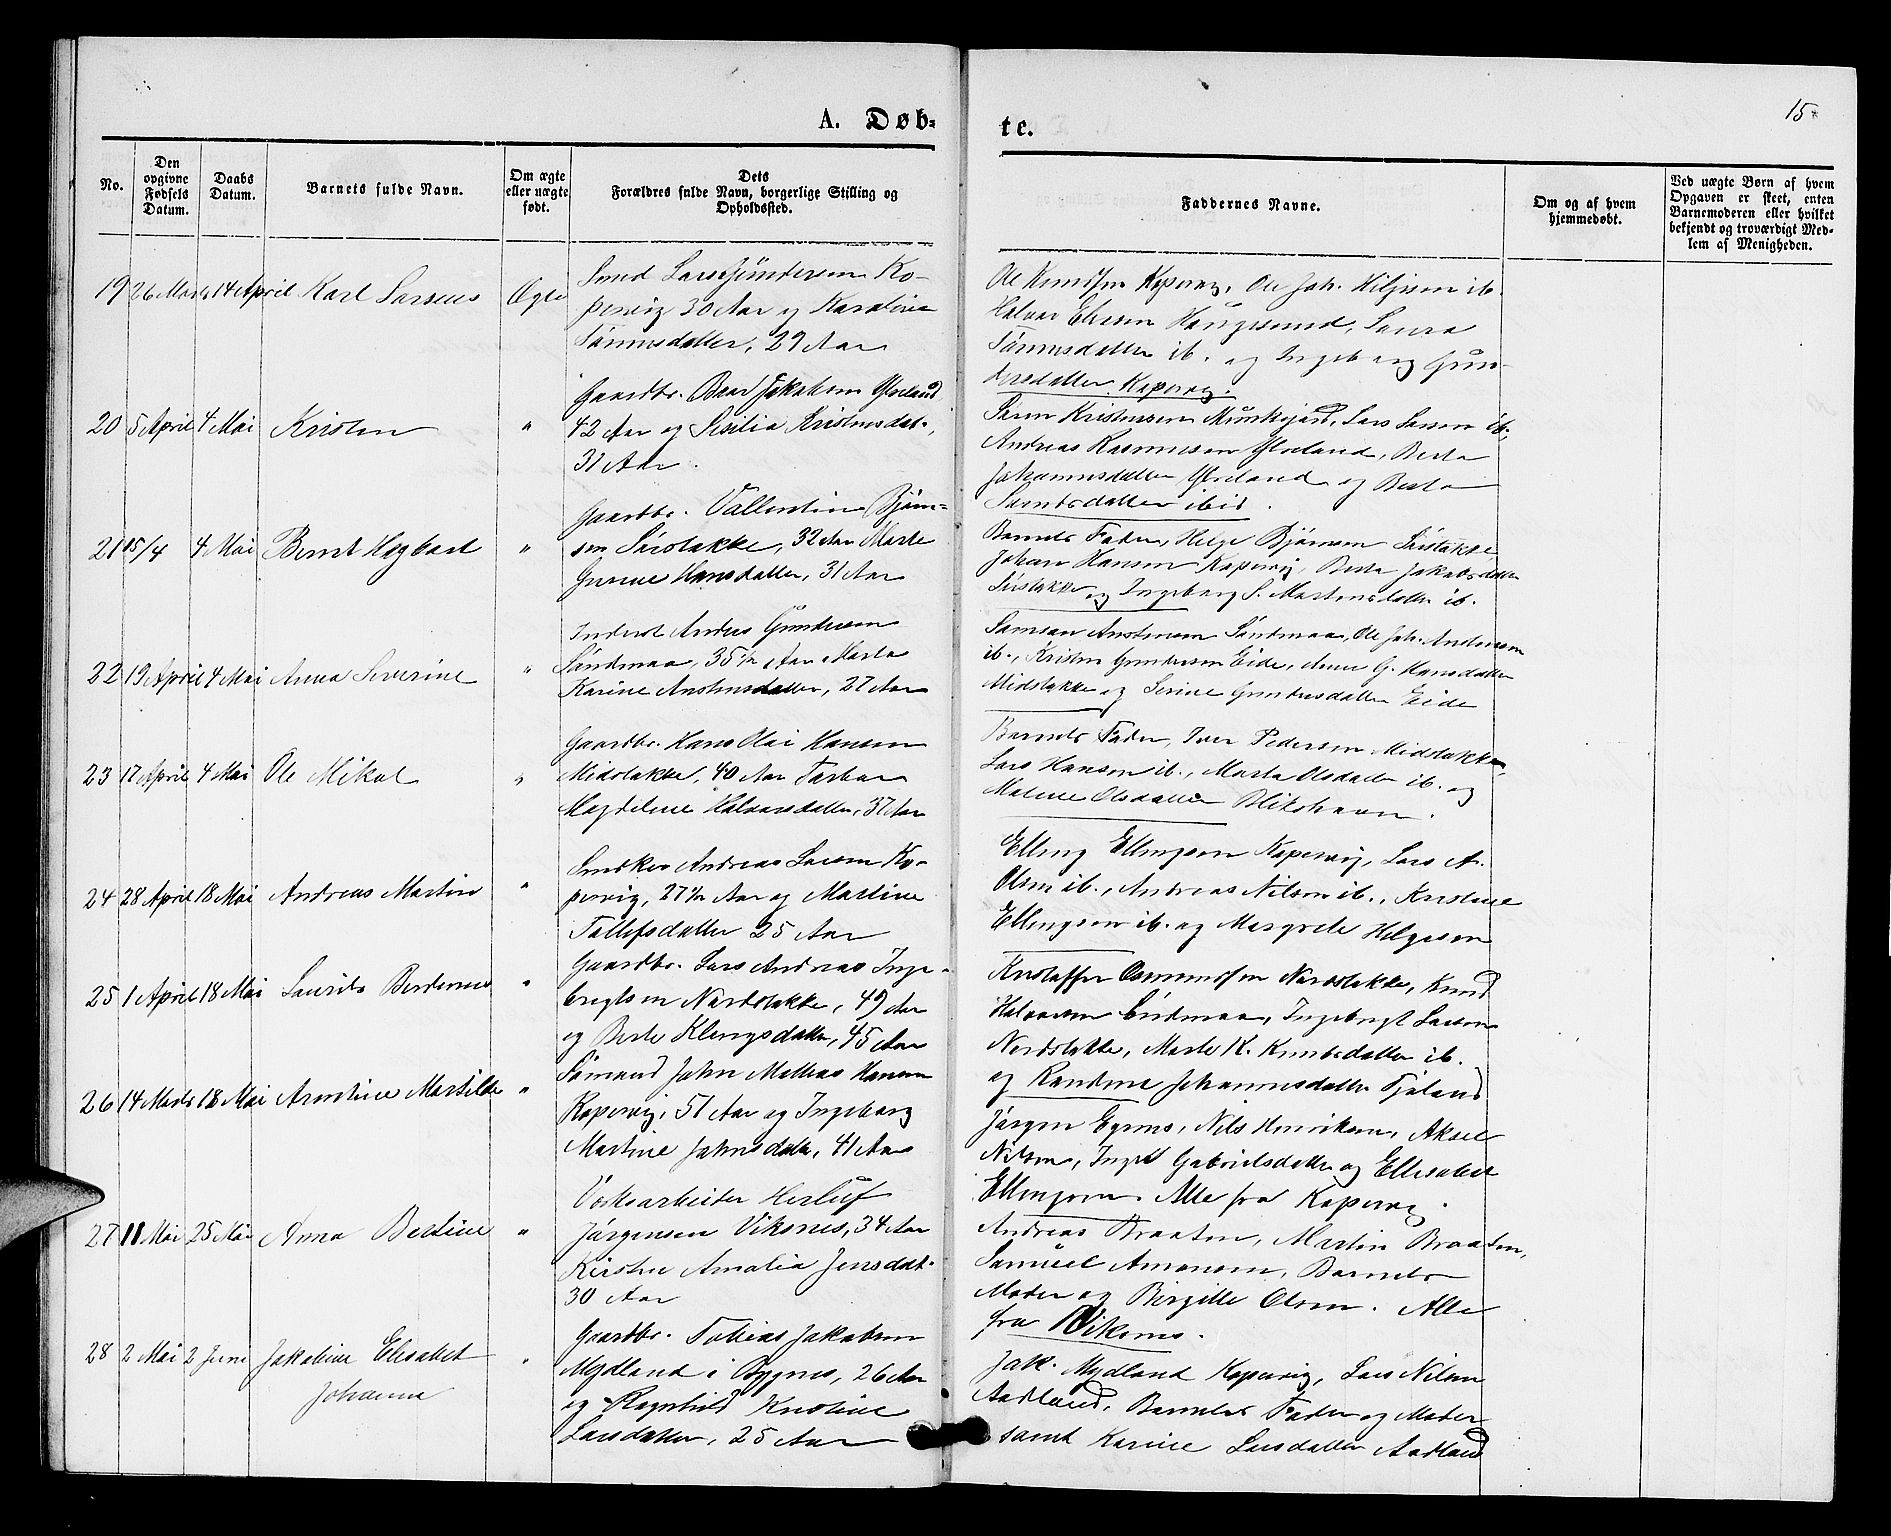 15.
A. Døb-
te.
No.
Den opgivne Fødsels Datum.
Daabs Datum.
Barnets fulde Navn.
Om ægte eller uægte født.
Dets Forældres fulde Navn, borgerlige Stilling og Opholdssted.
Faddernes Navne.
Om og af hvem hjemmedøbt.
Ved uægte Børn af hvem Opgaven er skeet, enten Barnemoderen eller hvilket bekjendt og troværdigt Medlem af Menigheden.
19 26 Marts 14 April Karl Larseus Ægte
Smed Lars Gundersen Ko-
pervig 30 Aar og Karoline
Tönnesdatter, 29 Aar
Ole Knudsen Kopervig, Ole Joh. Hiljesen ib.
Halvar Eliasen Haugesund, Laura
Tönnesdatter ib. og Ingeborg Gun-
dersdatter Kopervig.
20 5 April 4 Mai Kristen "
Gaardbr. Baar Jakobsen Ytreland
42 Aar og Sisilia Kristensdat.,
31 Aar.
Sören Kristensen Munkejord, Lars Larsen ib.,
Andreas Rasmusen Ytreland, Berta
Johannesdatter Ytreland og Berta
datter ibid.
21 15/4 4 Mai Bernt Hagbart "
Gaardbr. Vallentin Björn-
sen Sörstokke, 32 Aar Marte
Gurine Hansdatter, 31 Aar
Barnets Fader, Helge Björnsen Sörstokke
Johan Hansen Kopervig, Berta Jakobsdatter
Sörstokke og Ingeborg S. Mortensdatter ib.
22 19 April 4 Mai Anna Severine "
Inderst Andres Gundersen
Söndmaa, 35 1/2 Aar, Marta
Karine Anstensdatter, 27 Aar
Samson Anstensen Söndmaa, Ole Joh. Andersen
ib., Kristen Gundersen Eide, Anne G. Hansdatter
Midstokke og Serine Gundersdatter Eide
23 17 April 4 Mai Ole Mikal "
Gaardbr. Hans Olai Hansen
Midstokke, 40 Aar Torbor
Magdelene Halvorsdatter, 37 Aar
Barnets Fader, Iver Pedersen Midstokke,
Lars Hansen ib., Marta Olsdatter ib. og
Malene Olsdatter Blikshavn.
24 28 April 18 Mai Andreas Martin "
Snedker Andreas Larsen Ko-
pervig, 27 1/2 Aar og Martine
Tollefsdatter 25 Aar
Elling Ellingsen Kopervig, Lars A.
Olsen ib., Andreas Nilsen ib., Kristine
Ellingsen ib. og Margrete Helgesen
25 1 April 18 Mai Laurits Berdenus "
Gaardbr. Lars Andreas Inge-
bregtsen Nordstokke, 49 Aar
og Berte Klengsdatter, 45 Aar
Kristoffer Osmundsen Nordstokke, Knud
Halvorsen Södmaa, Ingebregt Larsen
Nordstokke, Marte K. Knutsdatter ib.
og Randine Johannesdatter Fjoland
26 14 Marts 18 Mai Arentine Martilde "
Sömand John Mathias Hansen
Kopervig, 51 Aar og Ingeborg
Martine Johnsdatter, 41 Aar
Jörgen Egenes, Nils Henriksen, Aksel
Nilsen, Inger Gabrielsdatter og Ellisabet
Ellingsen. Alle fra Kopervig.
27 11 Mai 25 Mai Anna Bertine "
Værksarbeider Herluf
Jörgensen Viksnes, 34 Aar
Kirstine Amalia Jensdat.
30 Aar
Andreas Braaten, Martin Braaten,
Samuel Amonsen, Barnets
Moder og Birgitte Olsen. Alle
fra Viksnes.
28 2 Mai 2 Juni Jakobine Elisabet "
Johanna
Gaardbr. Tobias Jakobsen
Mydland i Bygnes, 26 Aar
og Ragnhild Kristine
Larsdatter, 25 Aar
Jak. Mydland Kopervig, Lars Nilsen
Aadland, Barnets Fader og Moder
samt Karine Larsdatter Aadland